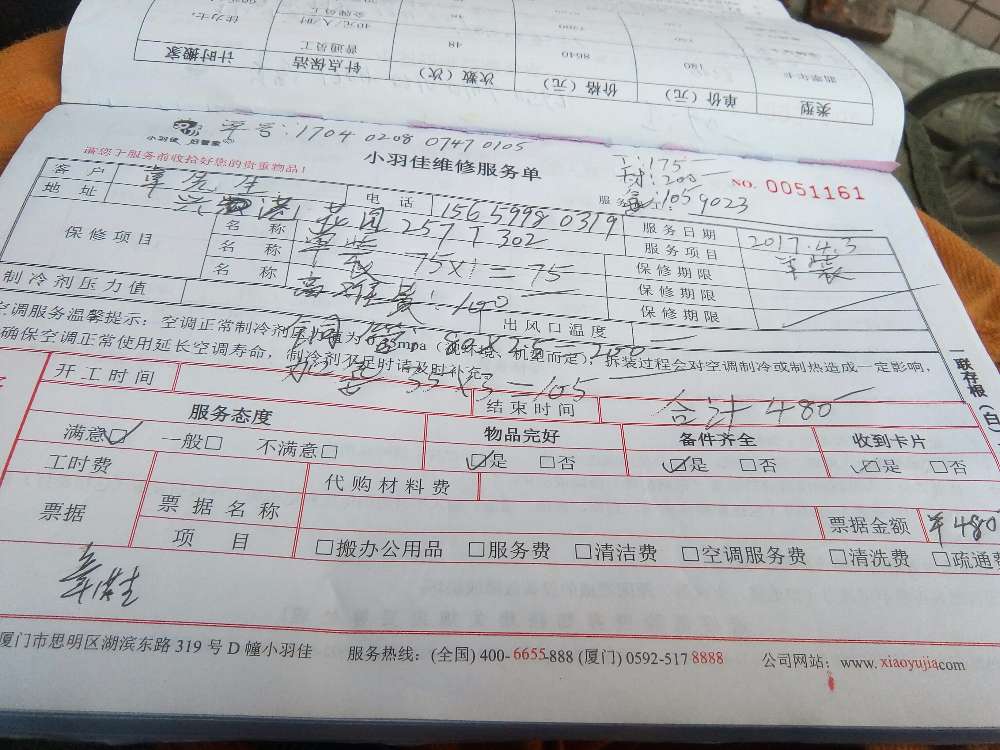 类型 单价（元） 价格（元） 次数（次） 针点保洁 计时搬家
180 8640 48 普通员工
40元/人/时
小羽佳 好管家
单号：1704 0208 0747 0105
请您于服务前收拾好您的贵重物品！
小羽佳维修服务单
工：175
材：200
105 9023
NO. 0051161
客户 章先生 电话 156 5998 0319 服务日期 2017.4.3
地址 花园 257 T 302 服务项目 单装
保修项目
名称 单装 75×1=75 保修期限
名称 高难费：100 保修期限
名称 保修期限
制冷剂压力值 出风口温度
铜管 80×2.5=200
空调服务温馨提示：空调正常制冷剂压力值为 mpa（视环境、机型而定），拆装过程会对空调制冷或制热造成一定影响，
确保空调正常使用延长空调寿命，制冷剂不足时请及时补充。
35×3=105
开工时间 结束时间 合计 480
服务态度 物品完好 备件齐全 收到卡片
满意☑ 一般□ 不满意□ ☑是 □否 ☑是 □否 ☑是 □否
工时费 代购材料费
票据 票据名称 票据金额 ¥480
项目 □搬办公用品 □服务费 □清洁费 □空调服务费 □清洗费 □疏通费
一联存根（白
厦门市思明区湖滨东路 319 号 D 幢小羽佳 服务热线：(全国) 400-6655-888 (厦门) 0592-517 8888 公司网站：www.xiaoyujia.com